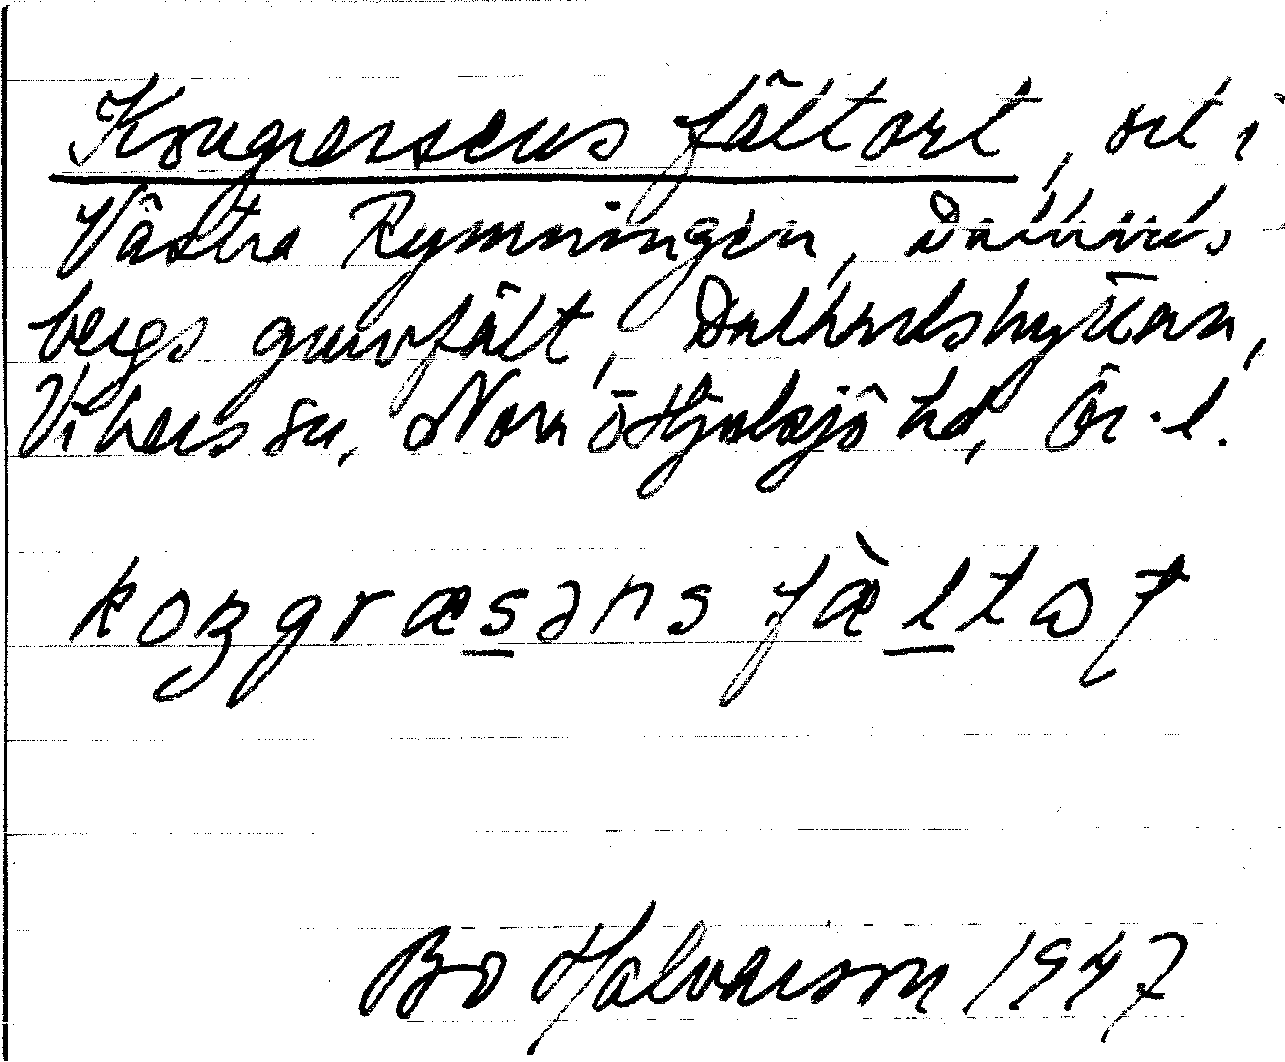 Kongressens fältort, ort i
Västra Rymningen, Dalkarls-
bergs gruvfält, Dalkarlshyttan,
Vikers sn, Nora o Hjulsjö hd, Ör. l.
koŋgræsəns fæ̀ltoṭ
Bo Halvarson 1947